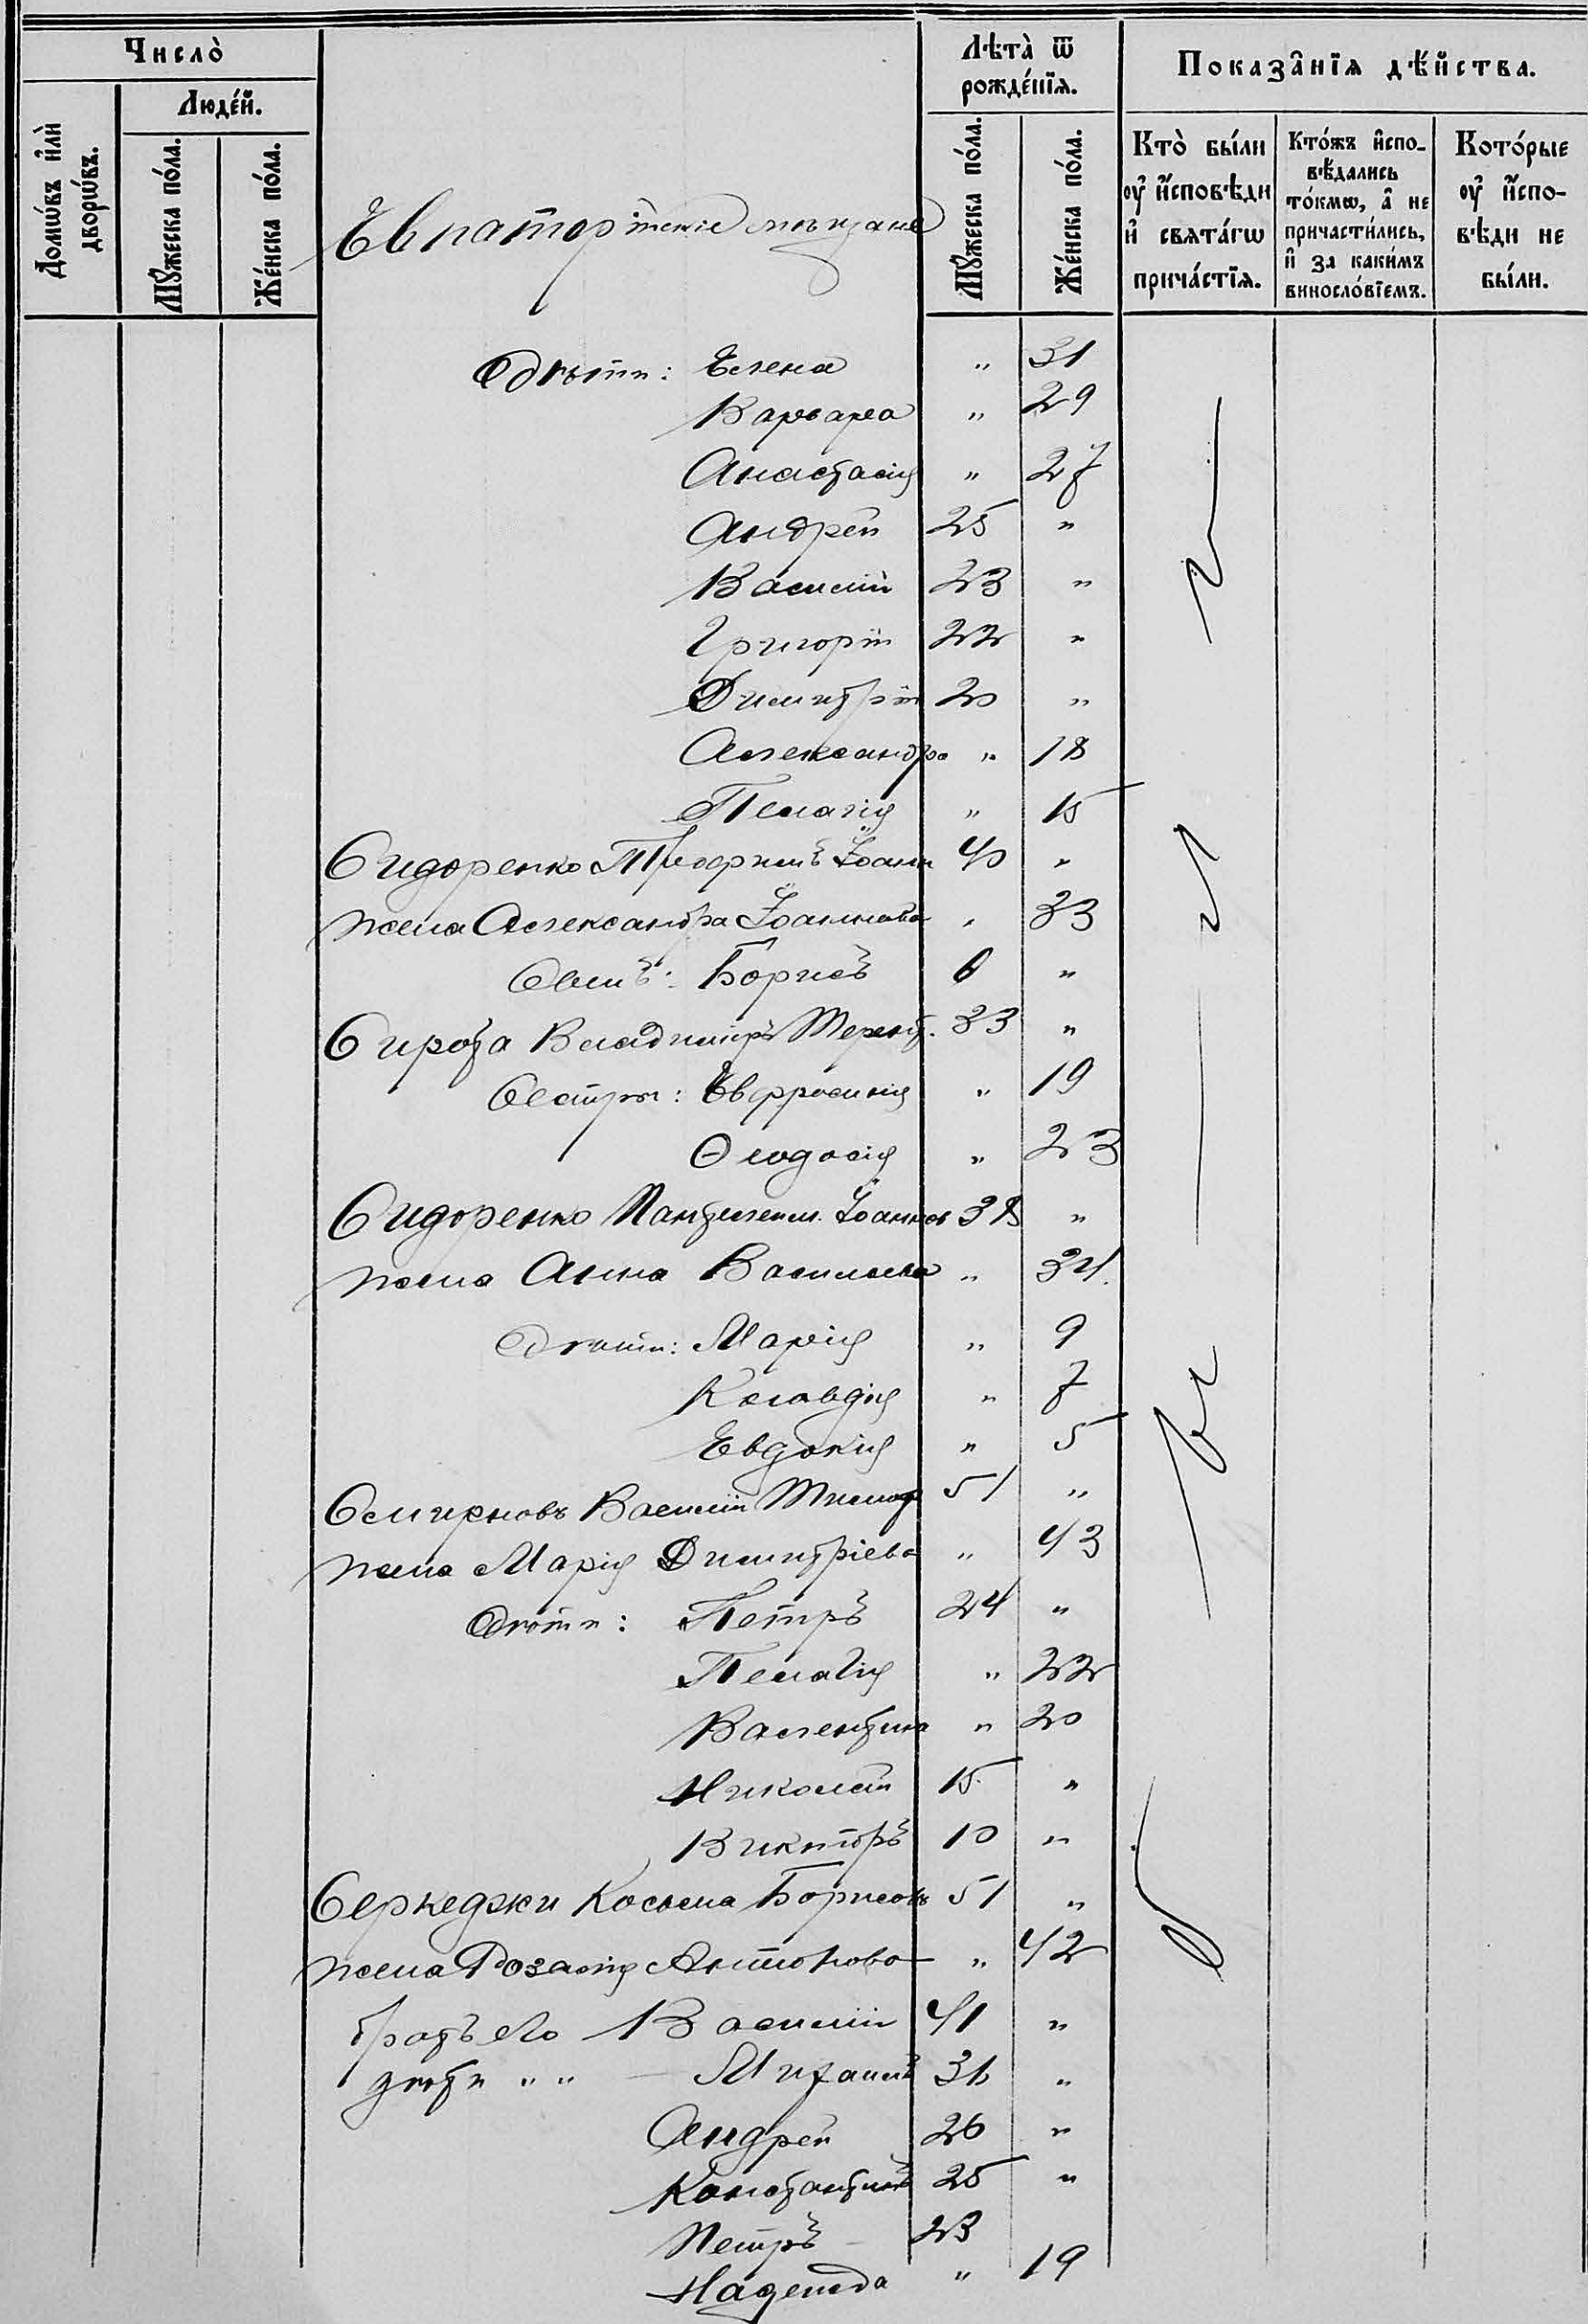 Число̀
Домѡ́въ и҆лѝ дворѡ́въ.
Люде́й.
Мꙋ́жеска по́ла.
Же́нска по́ла.
Лѣта̀ ѿ рожде́нїѧ.
Мꙋ́жеска по́ла.
Же́нска по́ла.
Показа̑нїѧ дѣ́йства.
Кто̀ бы́ли оу҆ и҆сповѣди и҆ свѧта́гѡ прича́стїѧ.
Кто́жъ и҆сповѣ́дались то́кмѡ, а҆ не причасти́лись, и҆ за каки́мъ виносло́вїемъ.
Кото́рые оу҆ и҆сповѣди не бы́ли.
Евпаторійскіе мѣщане
Дѣти: Елена " 31
Варвара " 29
Анастасія " 27
Андрей 25 "
Василій 23 "
Григорій 22 "
Димитрій 20 "
Александра " 18
Пелагія " 15
Сидоренко Трофимъ Іоанн 40 "
жена Александра Іоаннова " 33
Сынъ: Борисъ 6 "
Сирота Владиміръ Терент. 33 "
Сестры: Евфросинія " 19
Ѳеодосія " 23
Сидоренко Пантелеим. Іоаннов 38 "
жена Анна Васильева " 34.
Дѣти: Марія " 9
Клавдія " 7
Евдокія " 5
Смирновъ Василій Тимоф 51 "
жена Марія Димитріева " 43
Дѣти: Петръ 24 "
Пелагія " 22
Валентина " 20
Николай 15 "
Викторъ 10 "
Серкеджи Косьма Борисовъ 51 "
жена Розалія Антонова " 42
братъ его Василій 41 "
дѣти " " — Михаилъ 31 "
Андрей 26 "
Константинъ 25 "
Петръ — 23
Надежда " 19